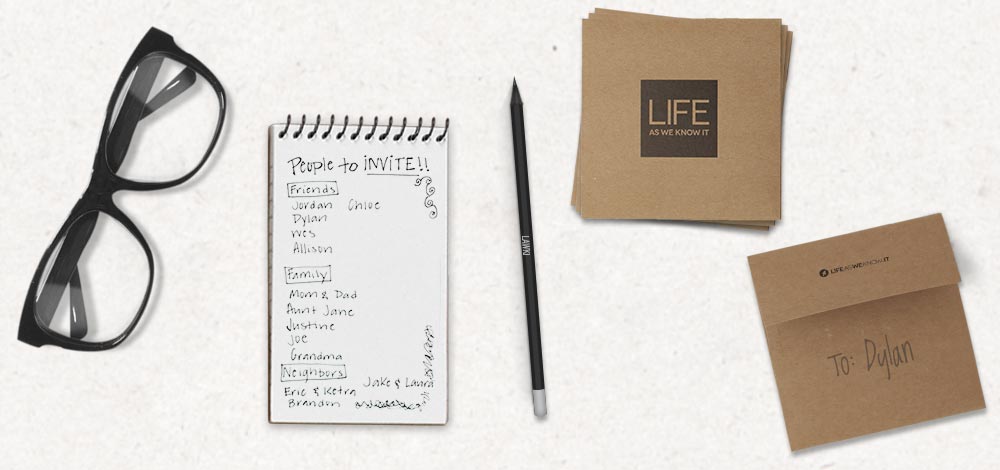 People to INVITE!!
Friends
Jordan Chloe
Dylan
Wes
Allison
Family
Mom & Dad
Aunt Jane
Justine
Joe
Grandma
Neighbors
Jake & Laura
Eric & Ketra
Brandon
LAWKI
LIFE
AS WE KNOW IT
LIFEASWEKNOWIT
To: Dylan